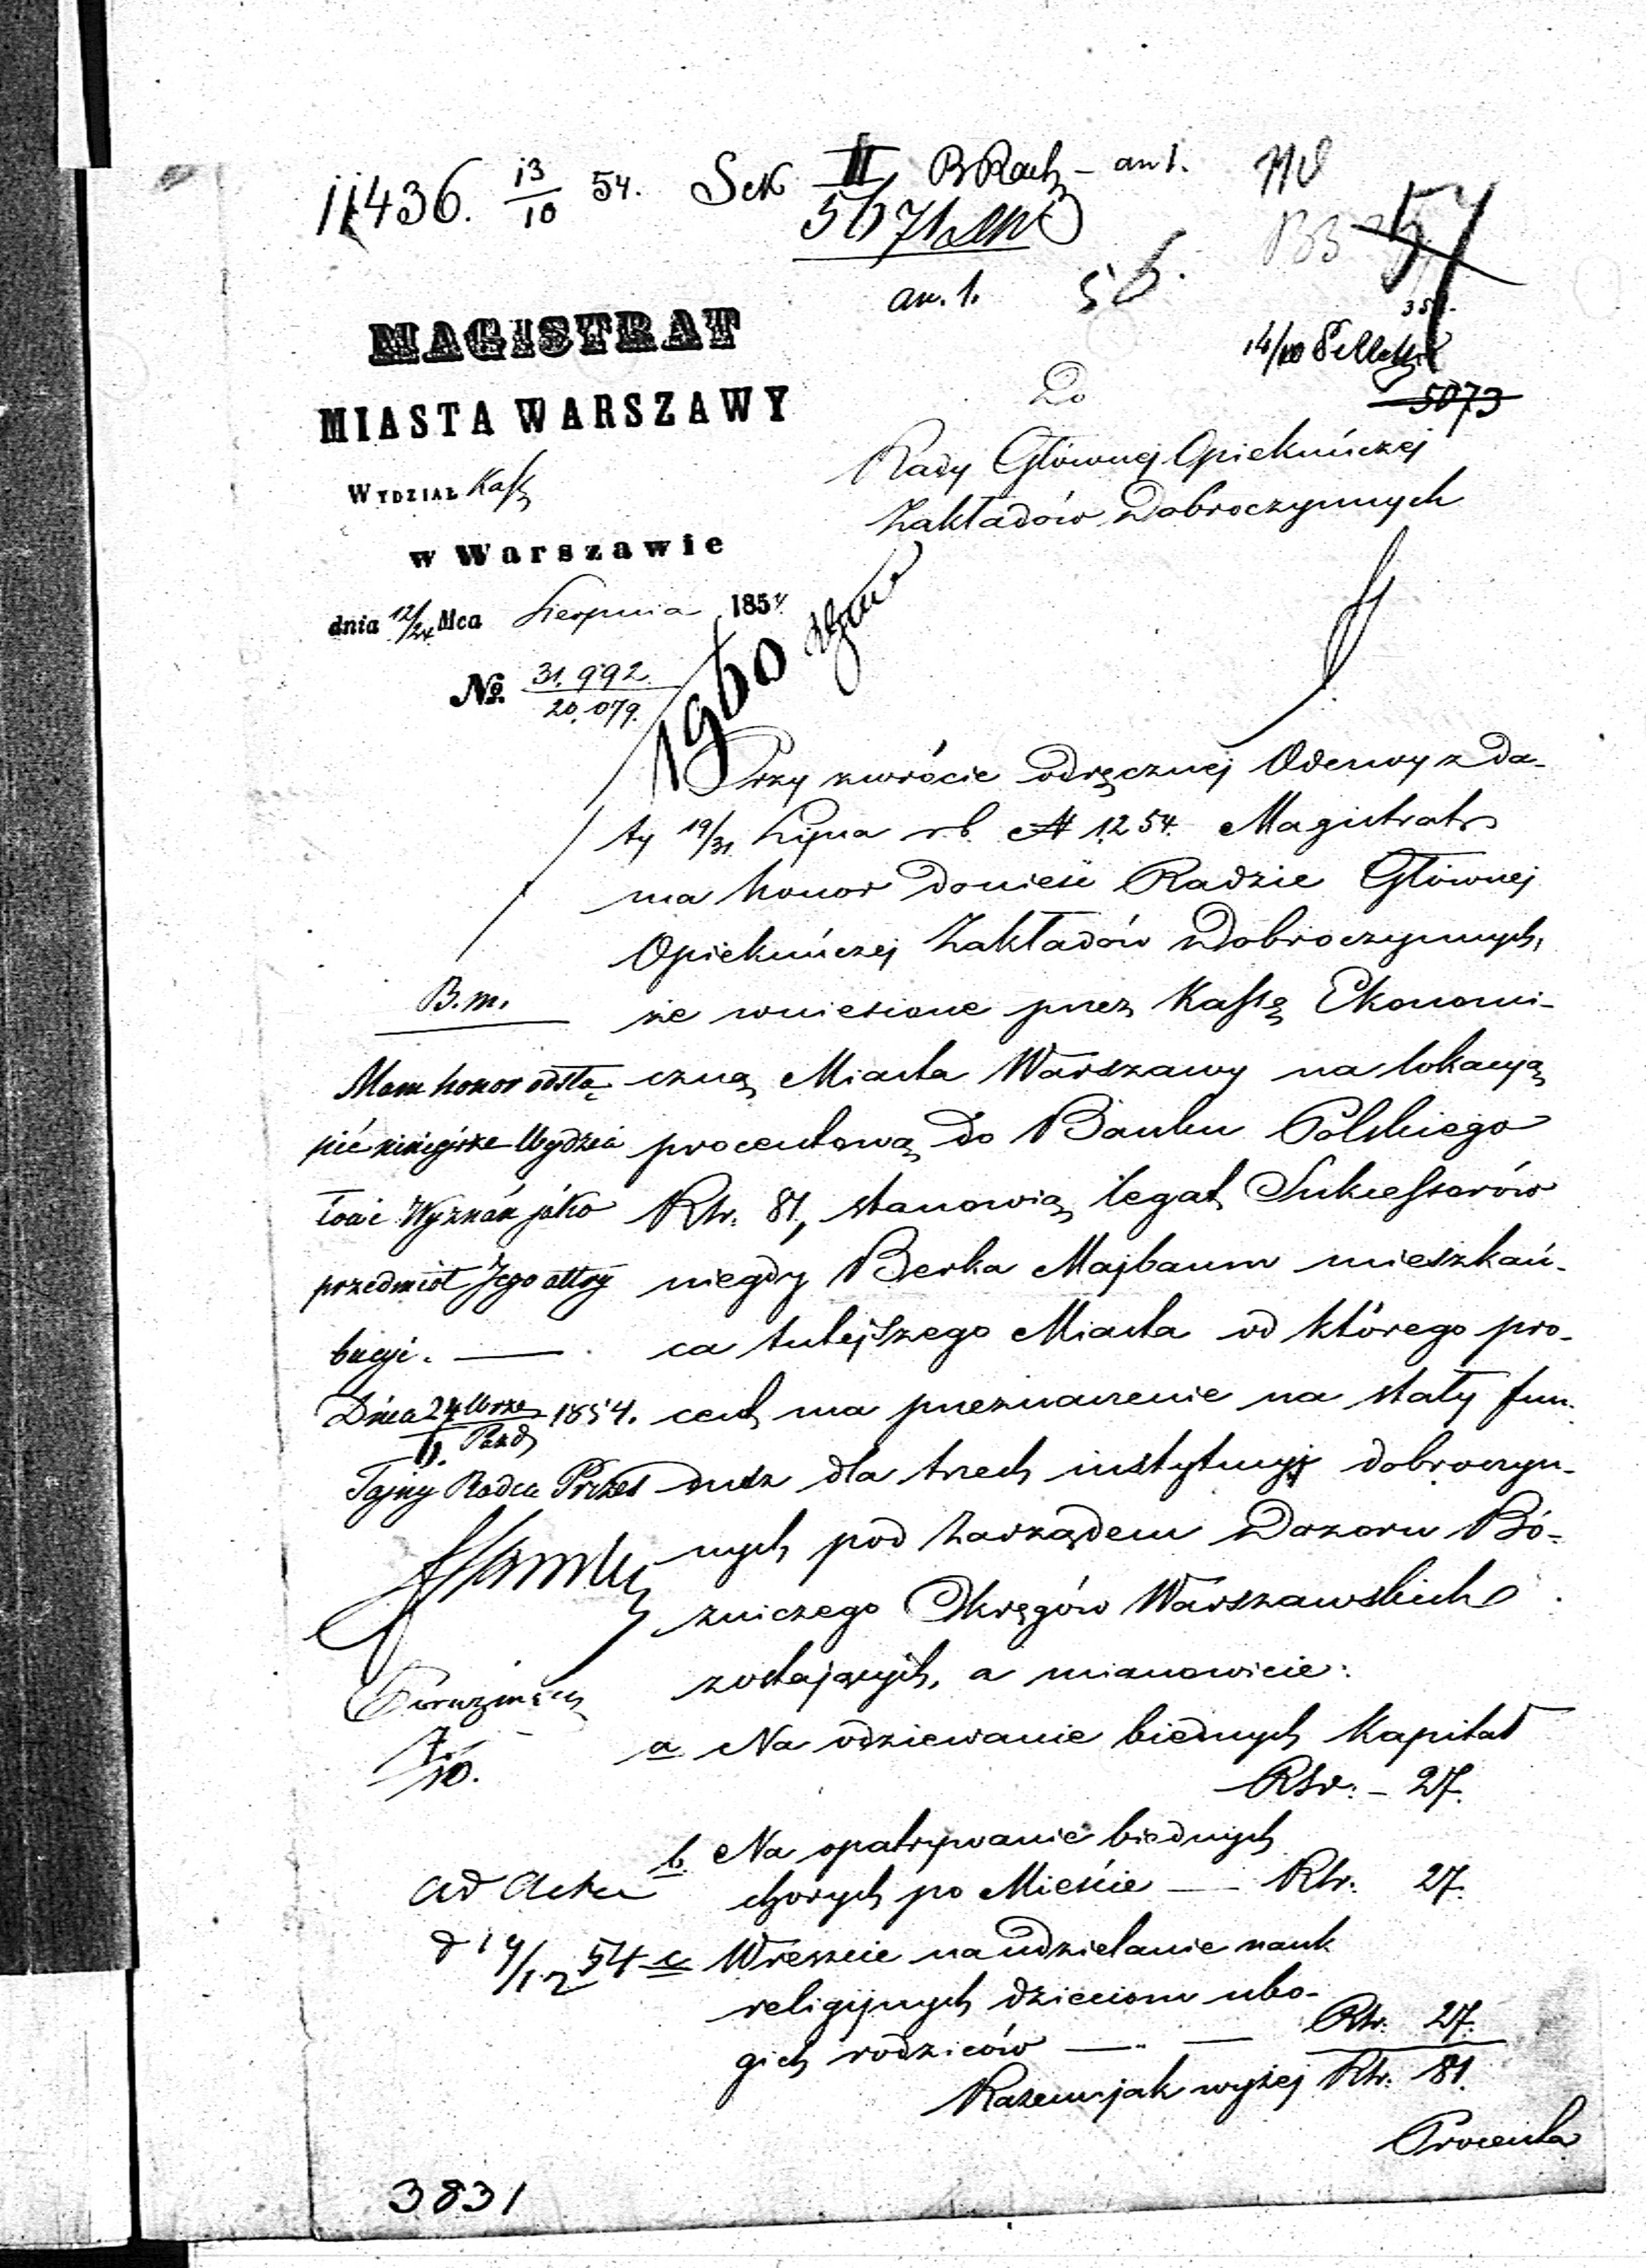 11436. 13/10 54. Sek II B Rach – an 1.
5671
an. 1. 56.
57
14/10
5073
MAGISTRAT
MIASTA WARSZAWY
WYDZIAŁ Kass
w Warszawie
dnia 12/24 Mca Sierpnia 1854
No. 31.992. / 20.079.
1960
Do
Rady Głównej Opiekuńczej
Zakładów Dobroczynnych
Przy zwrócie odręcznej Odezwy z Da-
ty 19/31 Lipca r.b. N 1254. Magistrat
ma honor donieść Radzie Głównej
Opiekuńczej Zakładów Dobroczynnych,
że wniesione przez Kassę Ekonomi-
czną Miasta Warszawy na lokacyą
procentową do Banku Polskiego
Rsr. 81, stanowią legat Sukcessorów
niegdy Berka Majbaum mieszkań-
ca tutejszego Miasta od którego pro-
cent ma przeznaczenie na stały fun-
dusz dla trzech instytucyj dobroczyn-
nych pod Zarządem Dozoru Bó-
zniczego Okręgów Warszawskich
zostających, a mianowicie:
a Na odziewanie biednych Kapitał
Rsr: – 27.
b. Na opatrywanie biednych
chorych po Mieście — Rsr: 27.
c Wreszcie na udzielanie nauk
religijnych dzieciom ubo-
gich rodziców — Rsr: 27.
Razem jak wyżej Rsr: 81.
Procenta
B. m.
Mam honor odstą-
pić niniejsze Wydzia
łowi Wyznań jako
przedmiot Jego attry
bucyi. —
Dnia 24 Wrze / 6. Paźd 1854.
Tajny Radca Prezes
7/10.
ad Acta
d 14/12 54
3831